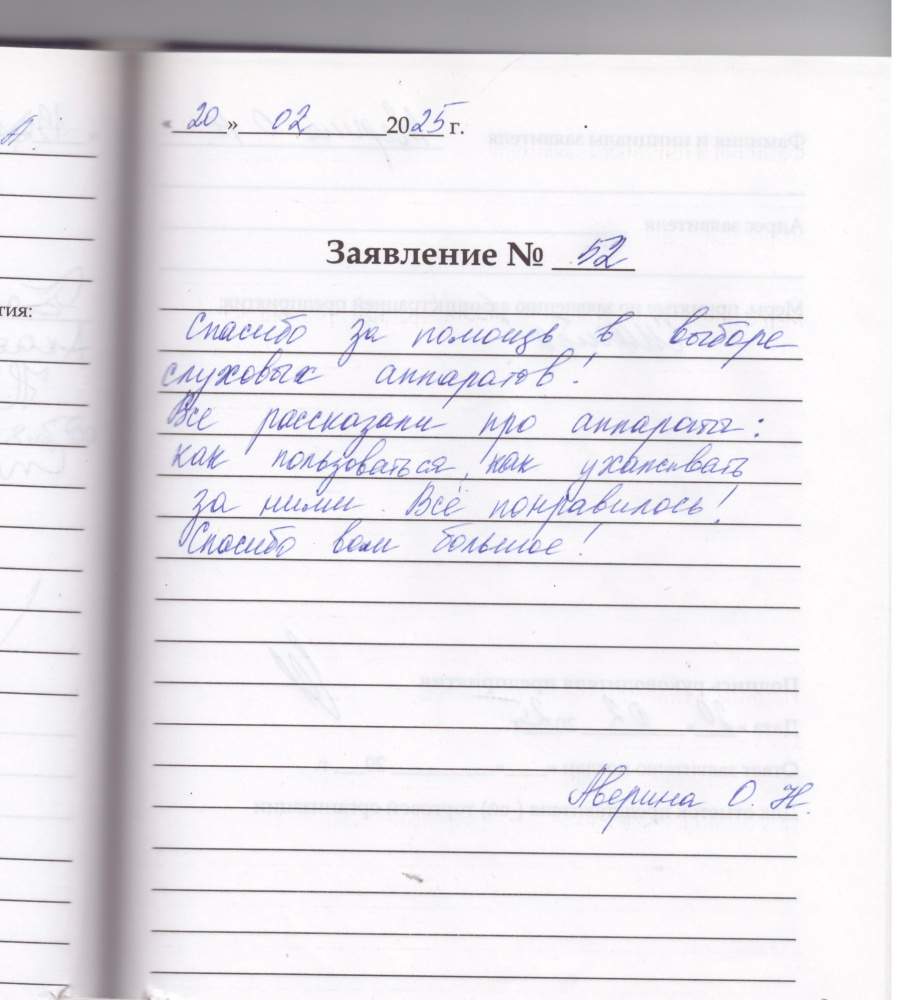 А.
тия:
«20» 02 2025 г.
Заявление № 52
Спасибо за помощь в выборе
слуховых аппаратов!
Все рассказали про аппараты:
как пользоваться, как ухаживать
за ними. Всё понравилось!
Спасибо вам большое!
Аверина О. Н.